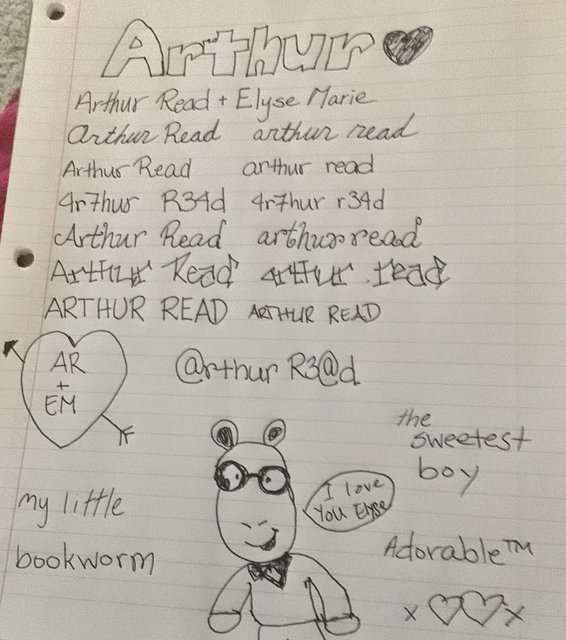 Arthur
Arthur Read + Elyse Marie
Arthur Read arthur read
Arthur Read arthur read
4r7hur R34d 4r7hur r34d
Arthur Read arthur read
Arthur Read arthur read
ARTHUR READ ARTHUR READ
AR
+
EM
@rthur R3@d
the
sweetest
boy
I love
You Elyse
my little
bookworm
Adorable™
x x